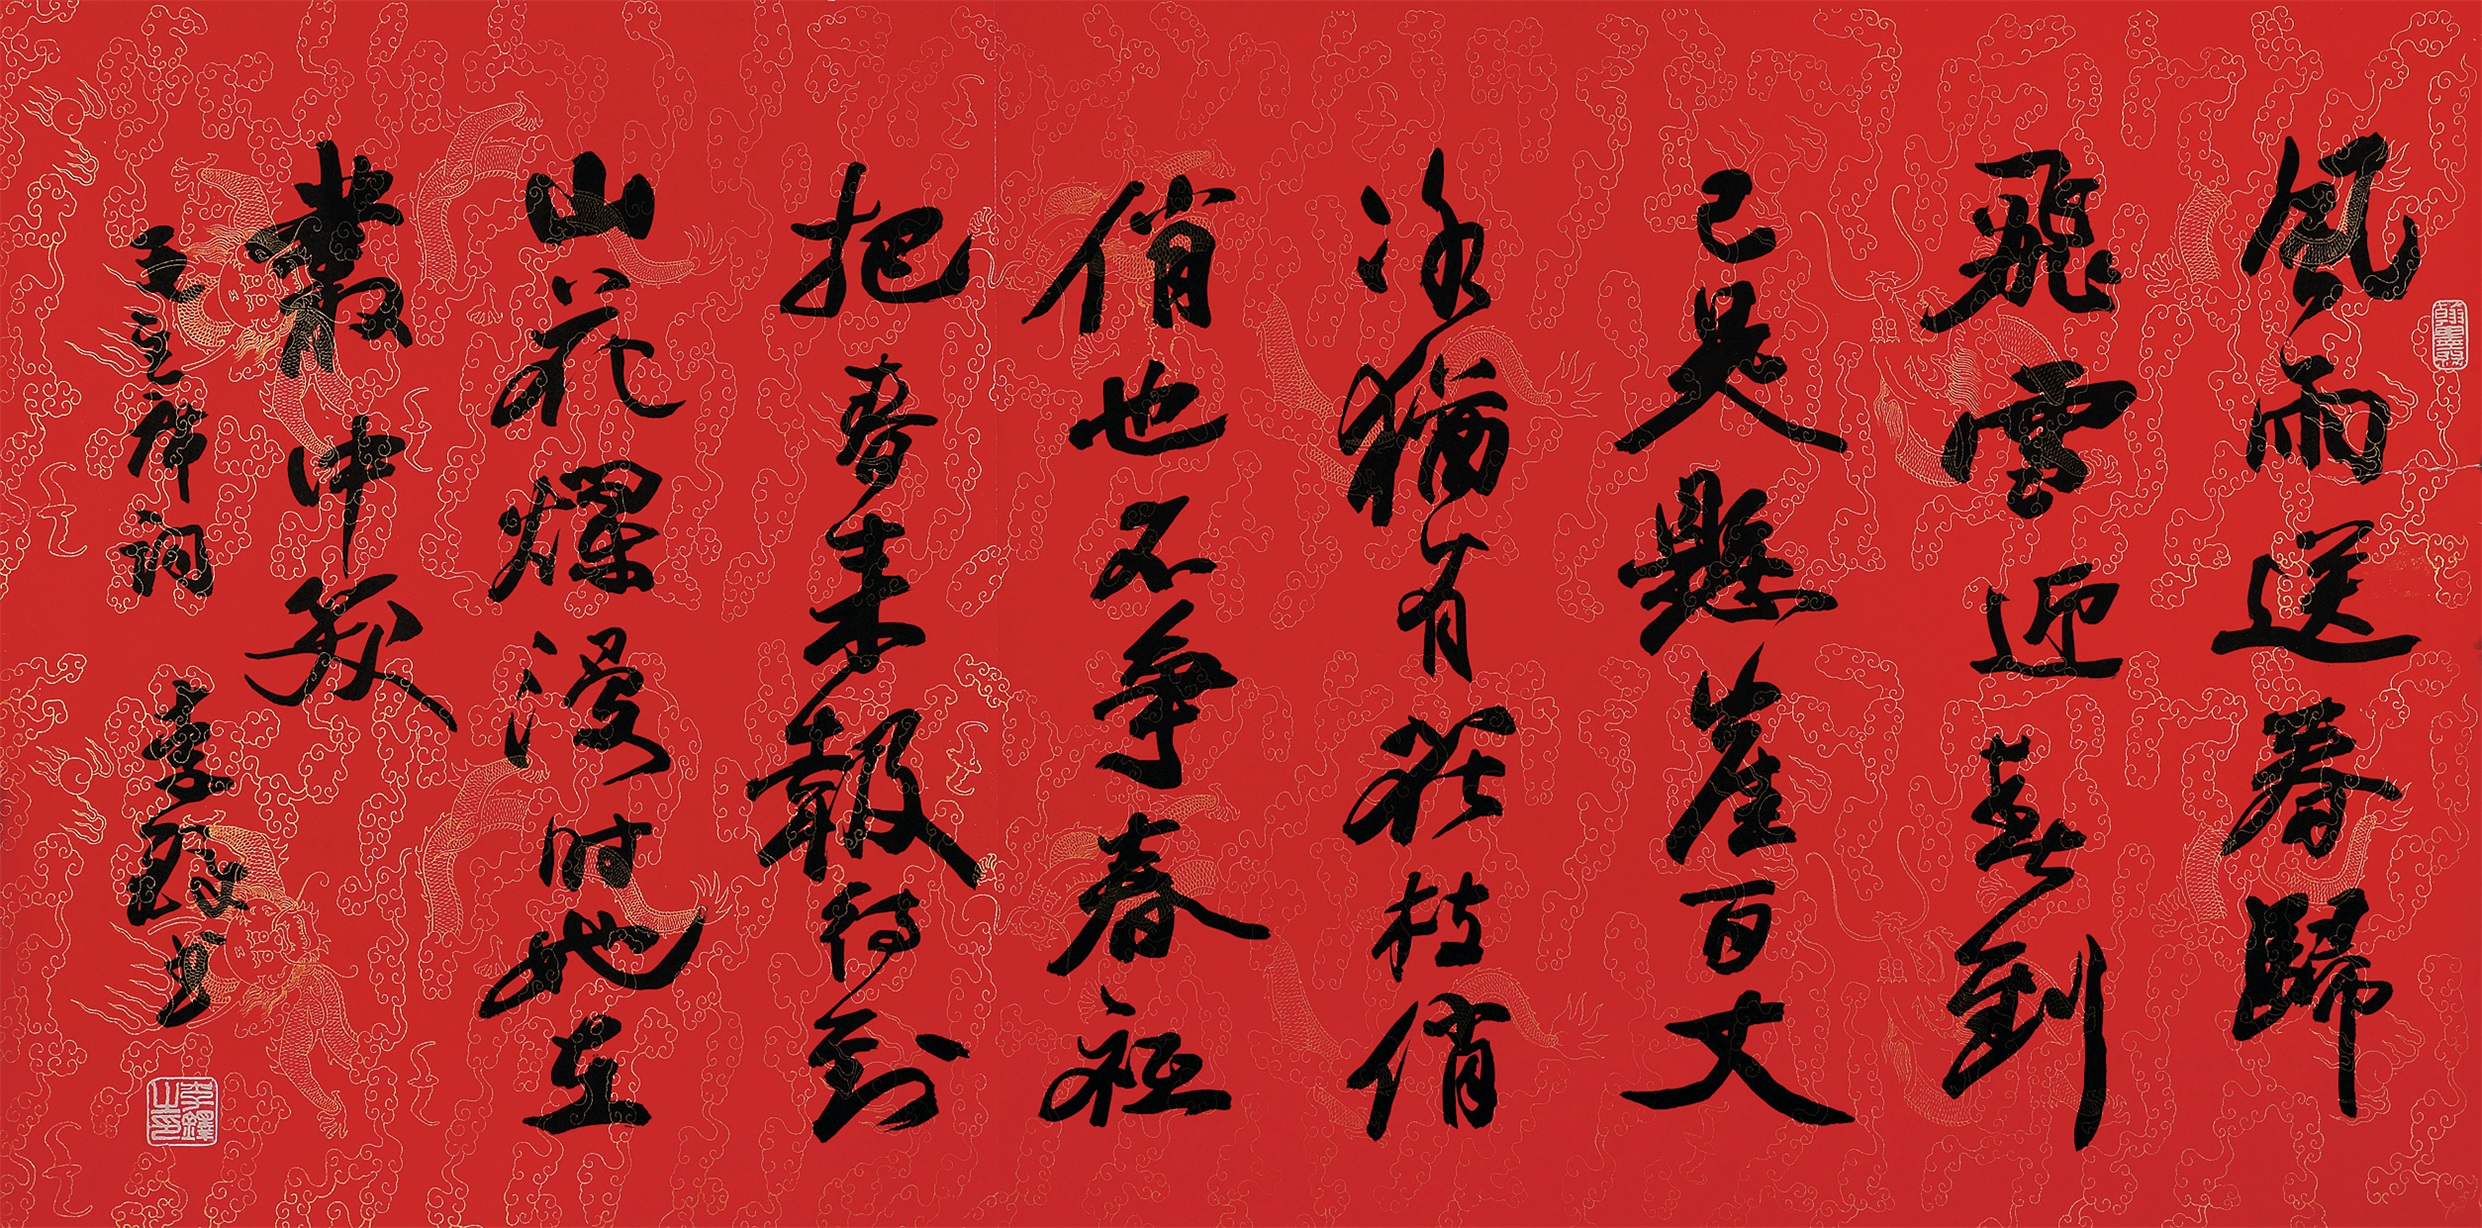 風雨送春歸
飛雪迎春到
已是懸崖百丈
冰猶有花枝俏
俏也不争春祗
把春来報待到
山花爛漫时她在
叢中笑
毛主席词 李